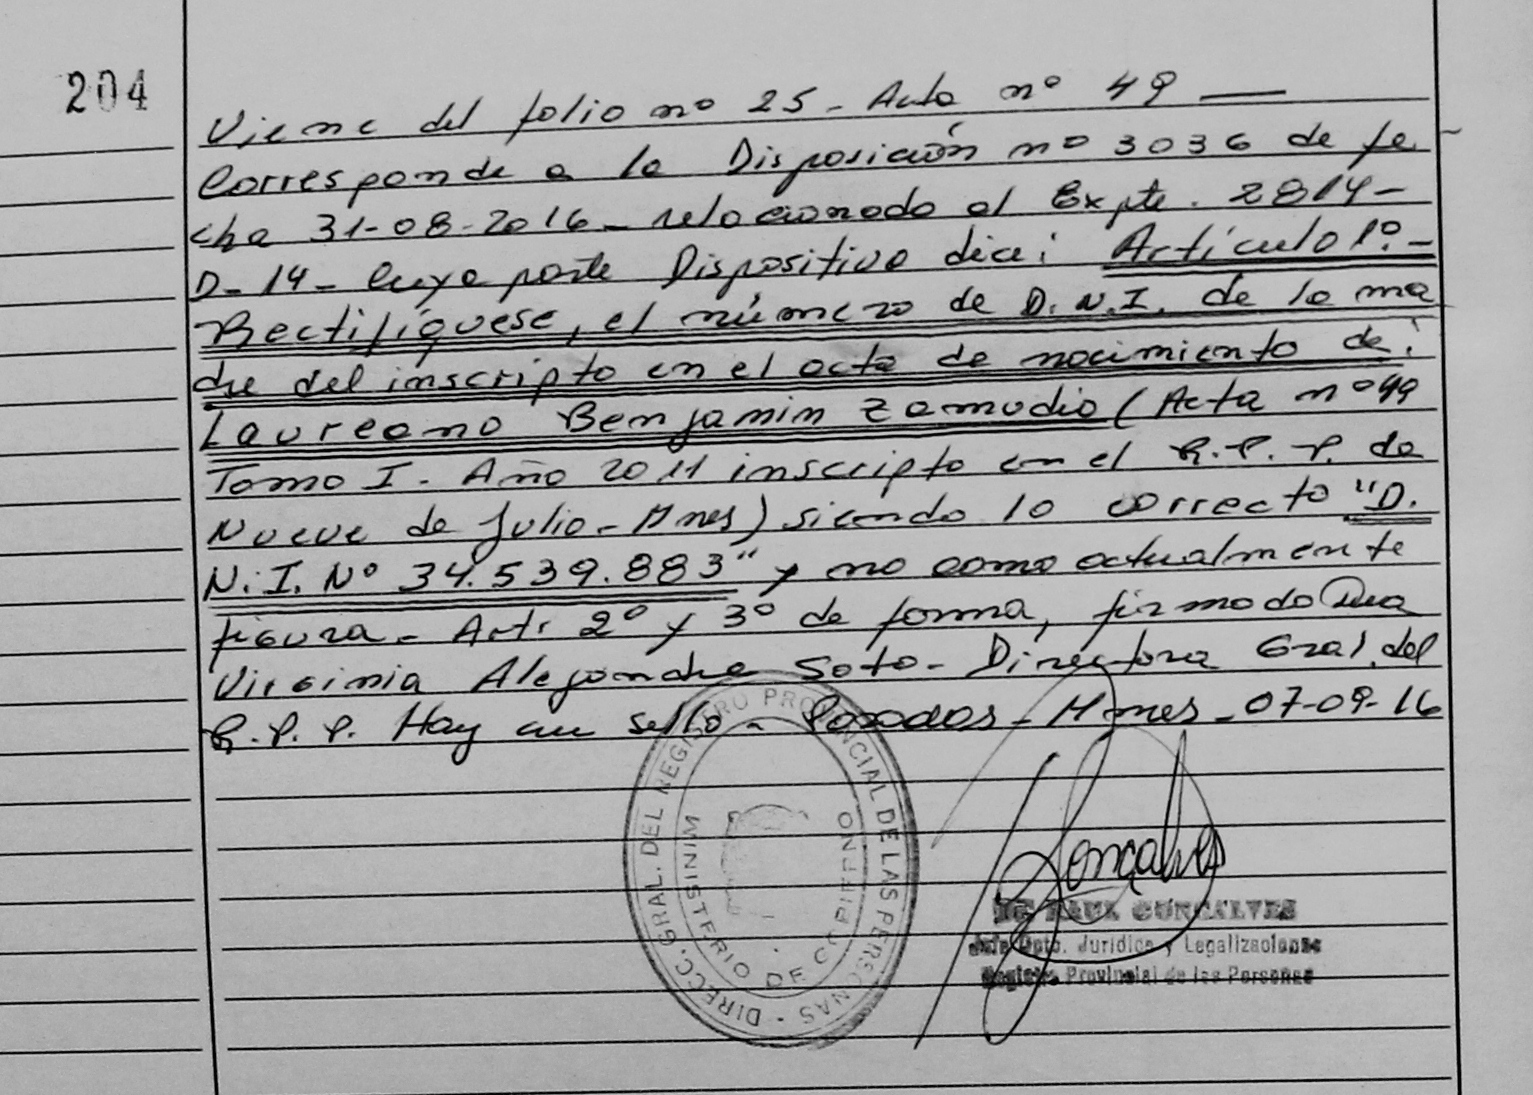 204
Viene del folio nº 25 - Acta nº 49 —
Corresponde a la Disposición nº 3036 de fe
cha 31-08-2016 - relacionado al Expte. 2814-
D-14 - cuya parte Dispositiva dice: Artículo 1º-
Rectifíquese, el número de D.N.I. de la ma
dre del inscripto en el acta de nacimiento de:
Laureano Benjamin Zamudio (Acta nº 49
Tomo I. Año 2011 inscripto en el R.P.P. de
Nueve de Julio - Mnes) siendo lo correcto "D.
N.I. Nº 34.539.883" y no como actualmente
figura. Art. 2º y 3º de forma, firmado Dra
Virginia Alejandra Soto - Directora Gral. del
R.P.P. Hay un sello - Posadas - Mnes - 07-09-16
DIRECC. GRAL. DEL REGISTRO PROVINCIAL DE LAS PERSONAS -
MINISTERIO DE GOBIERNO
Gonçalves
RAUL GONCALVES
Jefe Dpto. Jurídico y Legalizaciones
Registro Provincial de las Personas